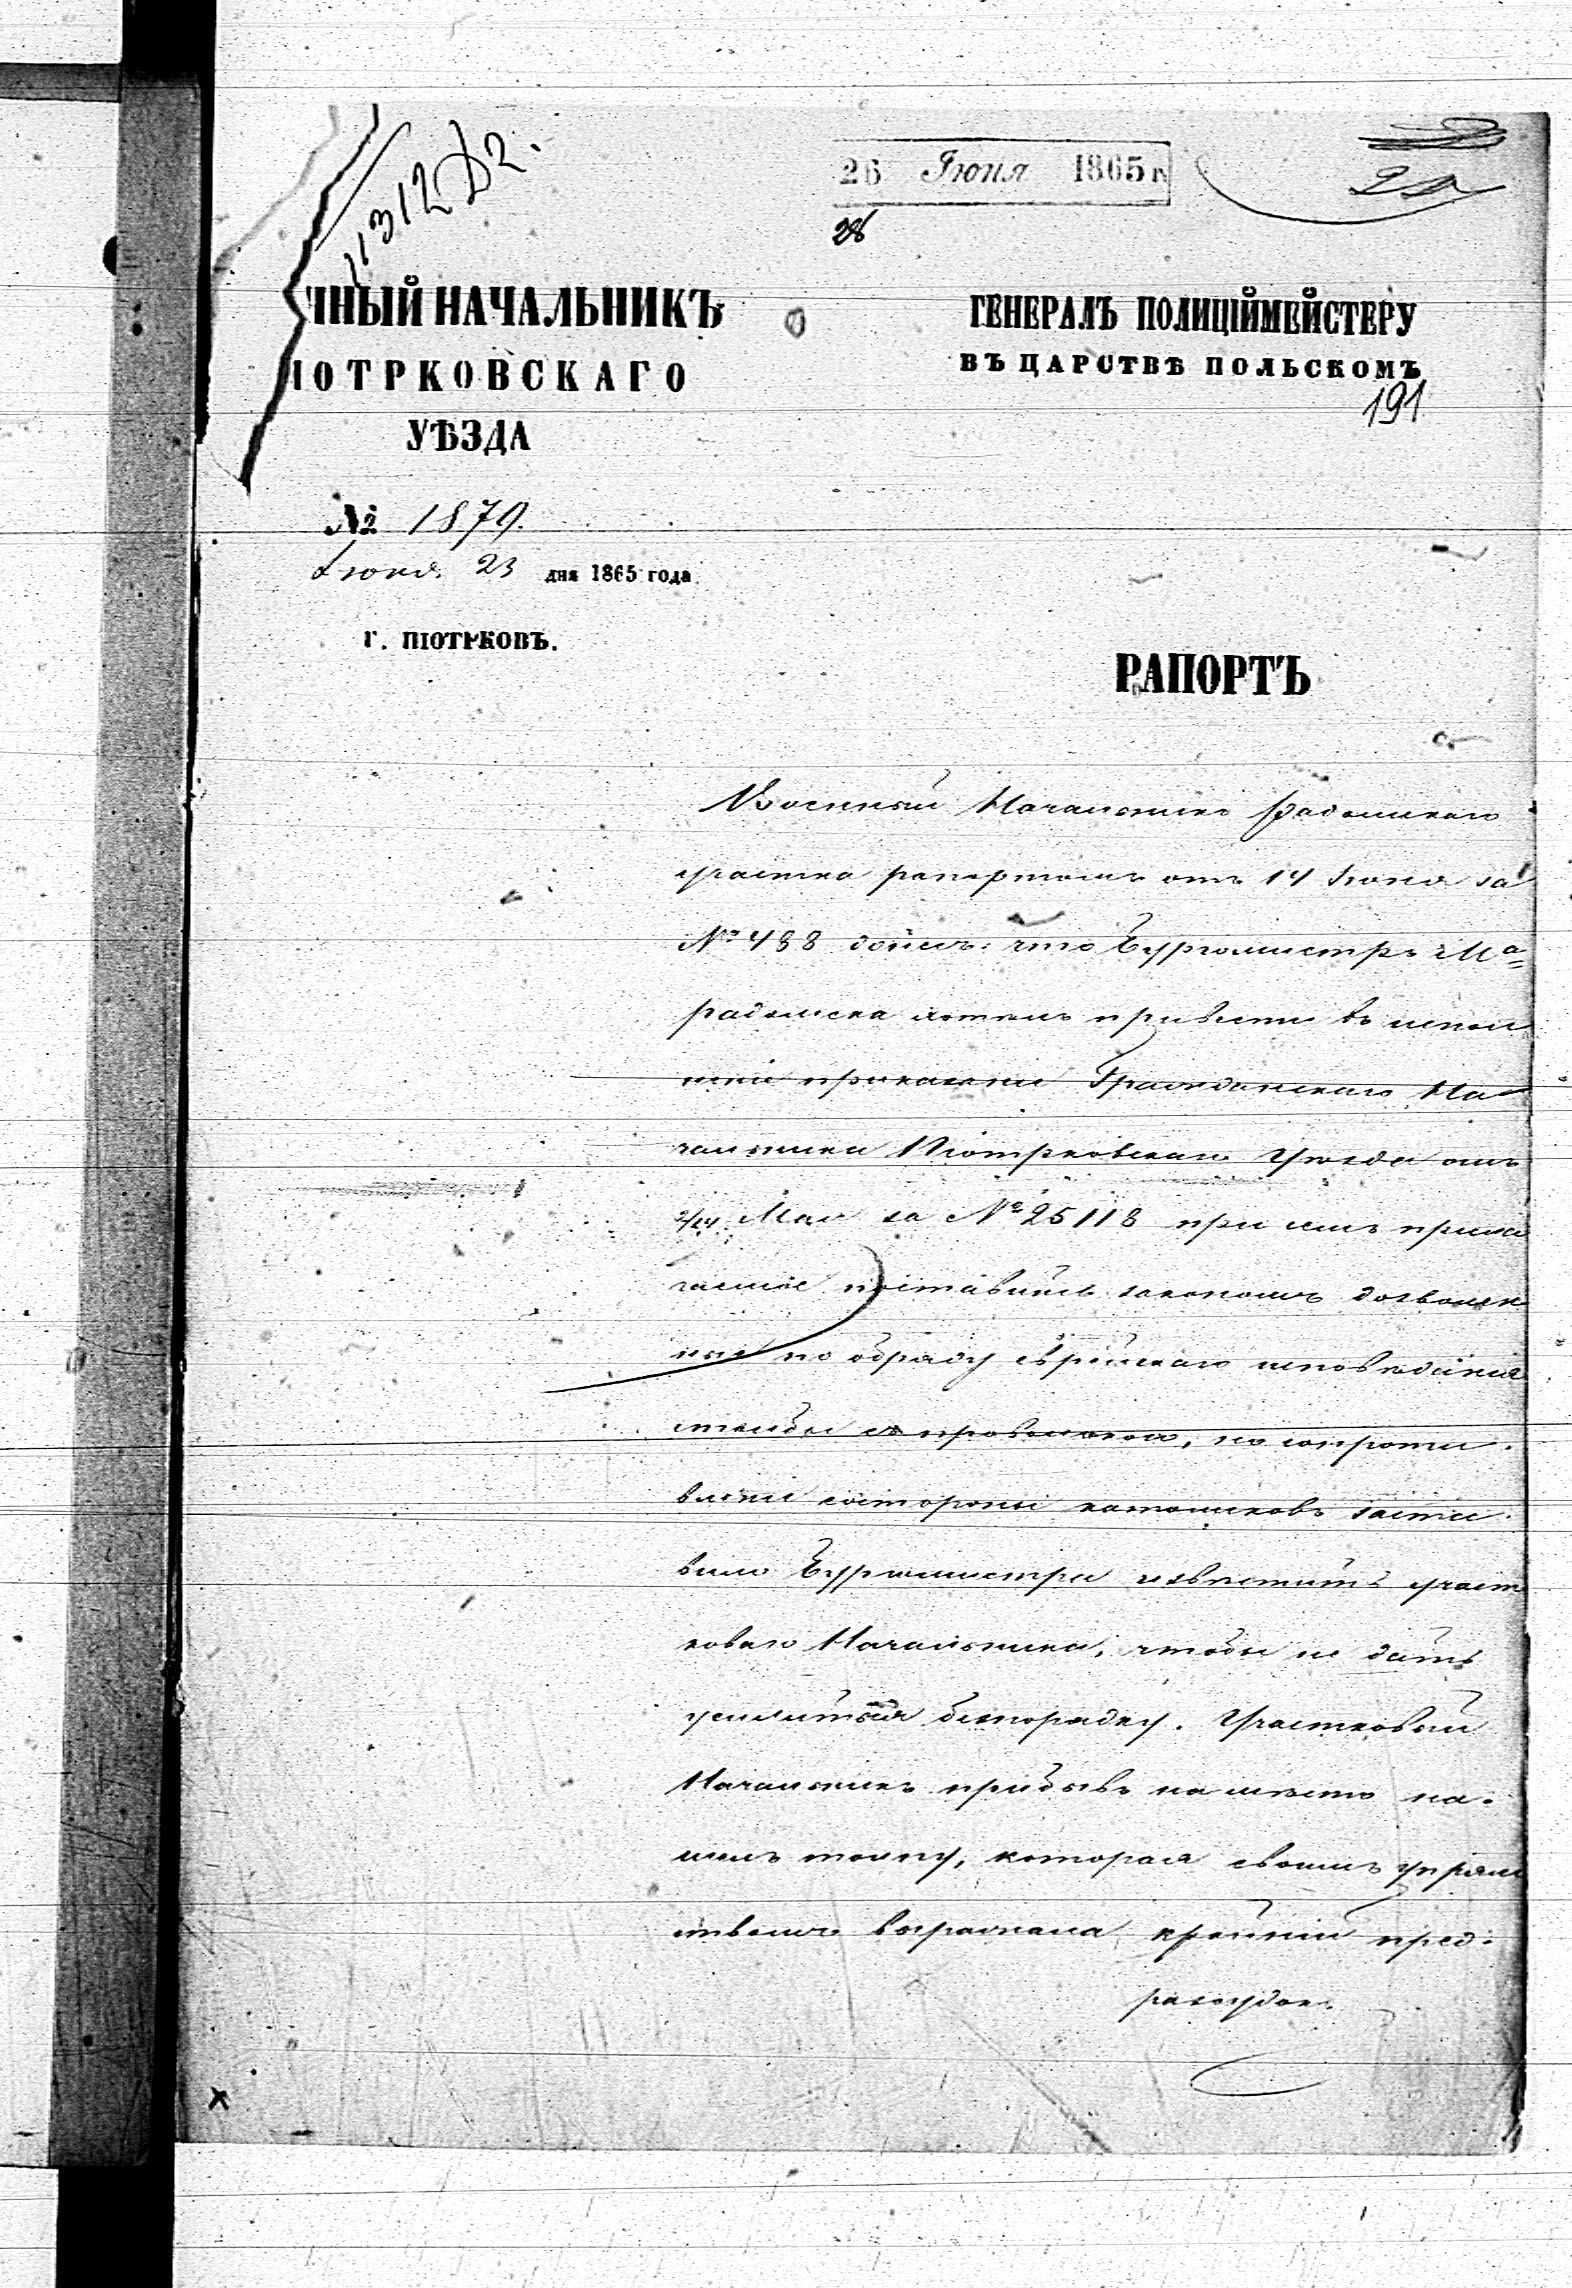 11312 Д2.
26 Іюня 1865 г.
28
ННЫЙ НАЧАЛЬНИКЪ
ПОТРКОВСКАГО
УѢЗДА
№ 1879.
Іюня 23 дня 1865 года.
Г. ПІОТРКОВЪ.
ГЕНЕРАЛЪ ПОЛИЦІЙМЕЙСТЕРУ
ВЪ ЦАРСТВѢ ПОЛЬСКОМЪ
191
РАПОРТЪ
Военный Начальникъ Радомскаго
участка рапортомъ отъ 14 Іюня за
№ 488 что Бургомистръ
радомска хотѣлъ привести въ испол
неніе приказаніе Гражданскаго На
чальника Піотрковскаго Уѣзда отъ
2/14 Мая за № 25118 при семъ прила
гаемое поставить закономъ дозволен
ные по обряду еврейскаго исповѣданія
столбы съ проволокою, но сопроти
вленіе со стороны католиковъ заста
вило Бургомистра извѣстить участ
коваго Начальника, чтобы не дать
усилиться безпорядку. Участковый
Начальникъ прибывъ на мѣсто на
шелъ толпу, которая своимъ упрям
ствомъ выражала крайній пред
разсудокъ.